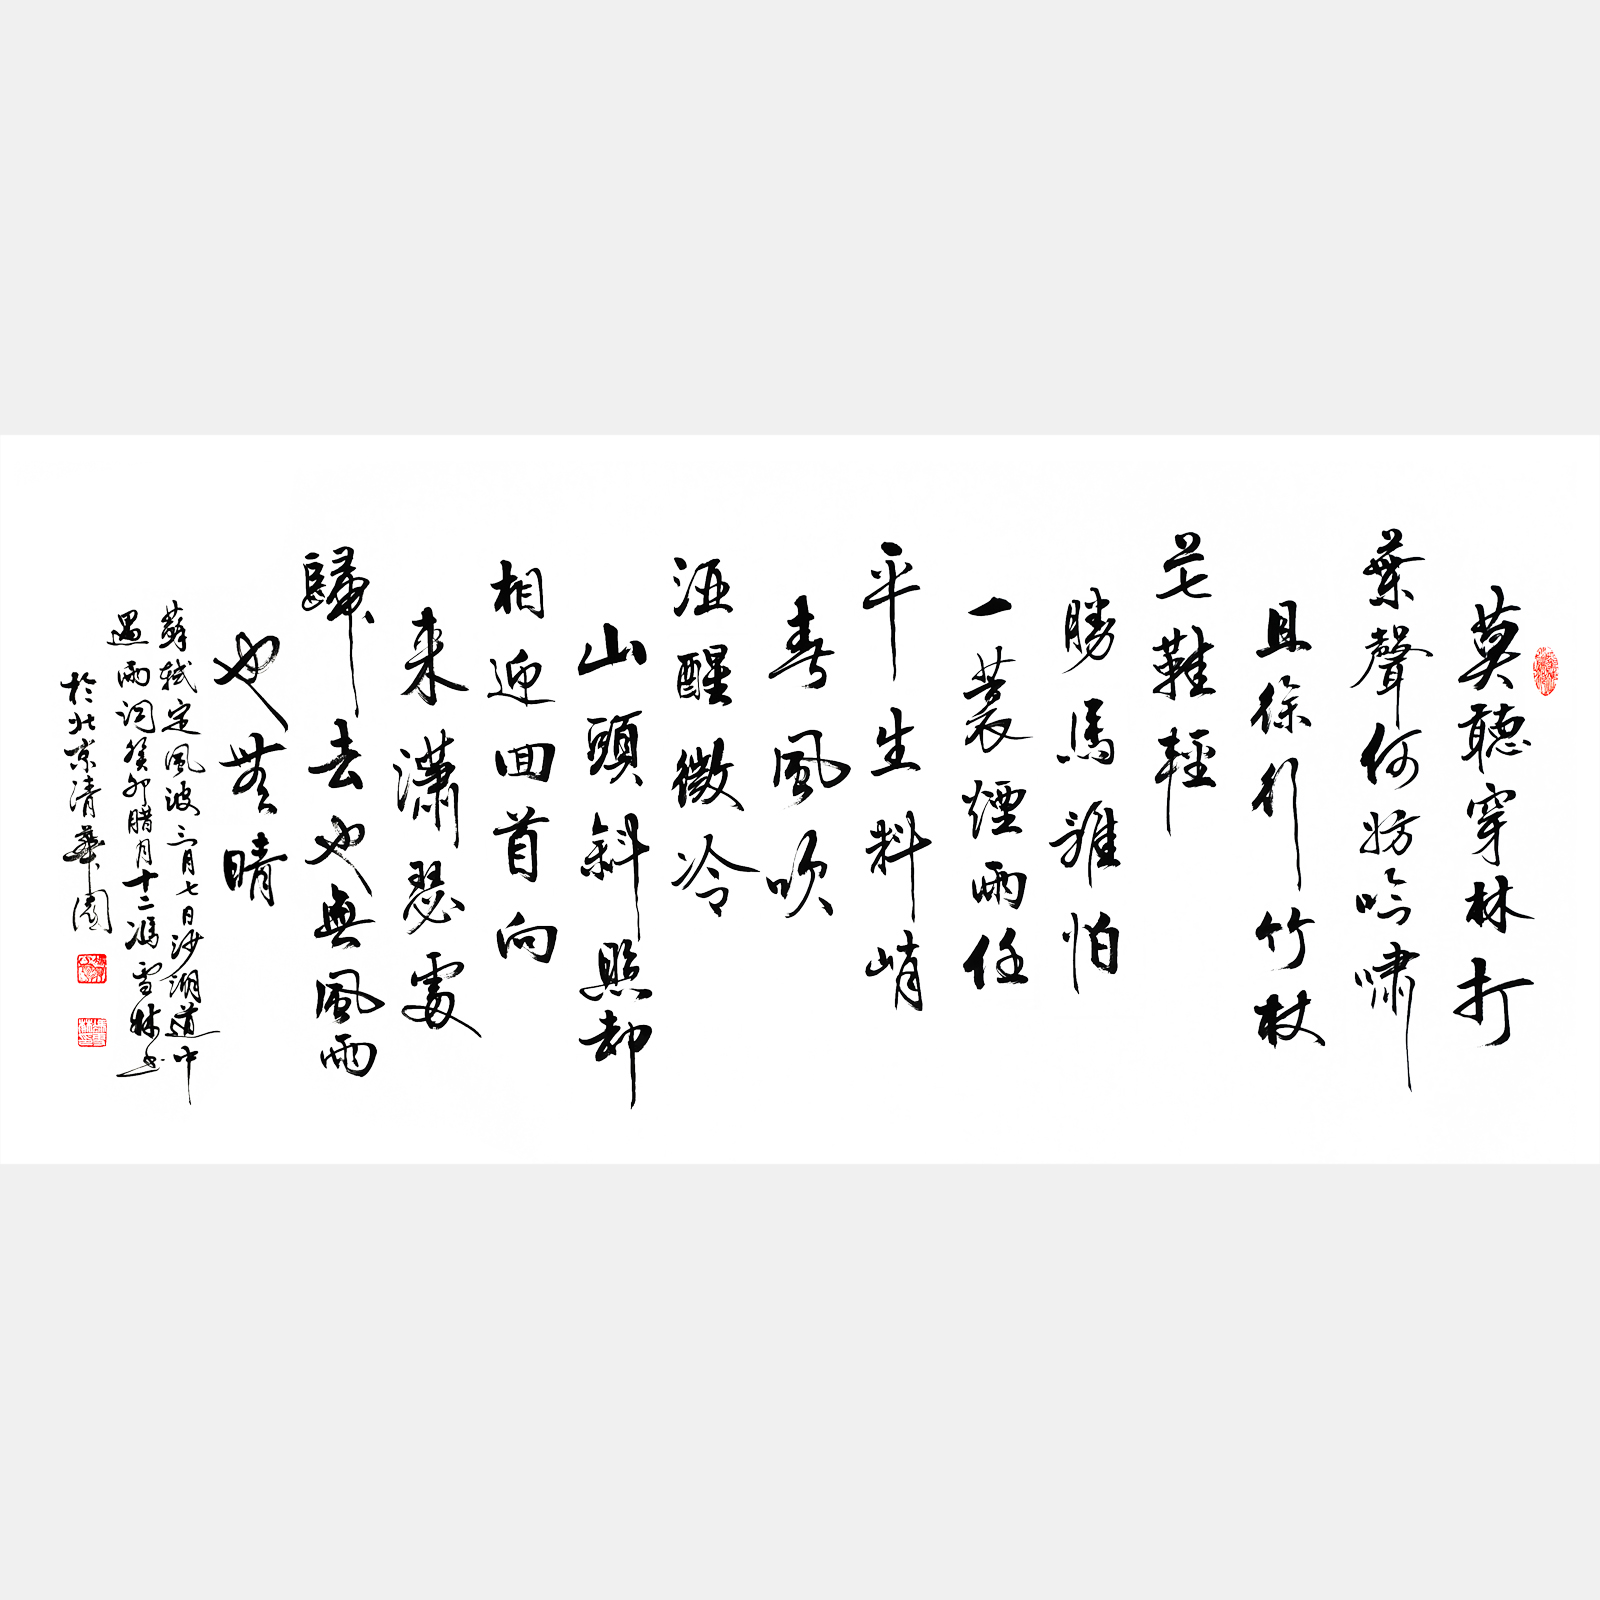 莫聽穿林打
葉聲何妨吟嘯
且徐行竹杖
芒鞋輕
勝馬誰怕
一蓑煙雨任
平生料峭
春風吹
酒醒微冷
山頭斜照却
相迎回首向
來瀟瑟處
歸去也無風雨
也無晴
蘇軾定風波三月七日沙湖道中
遇雨詞癸卯腊月十二馮雪林书
於北京清華園